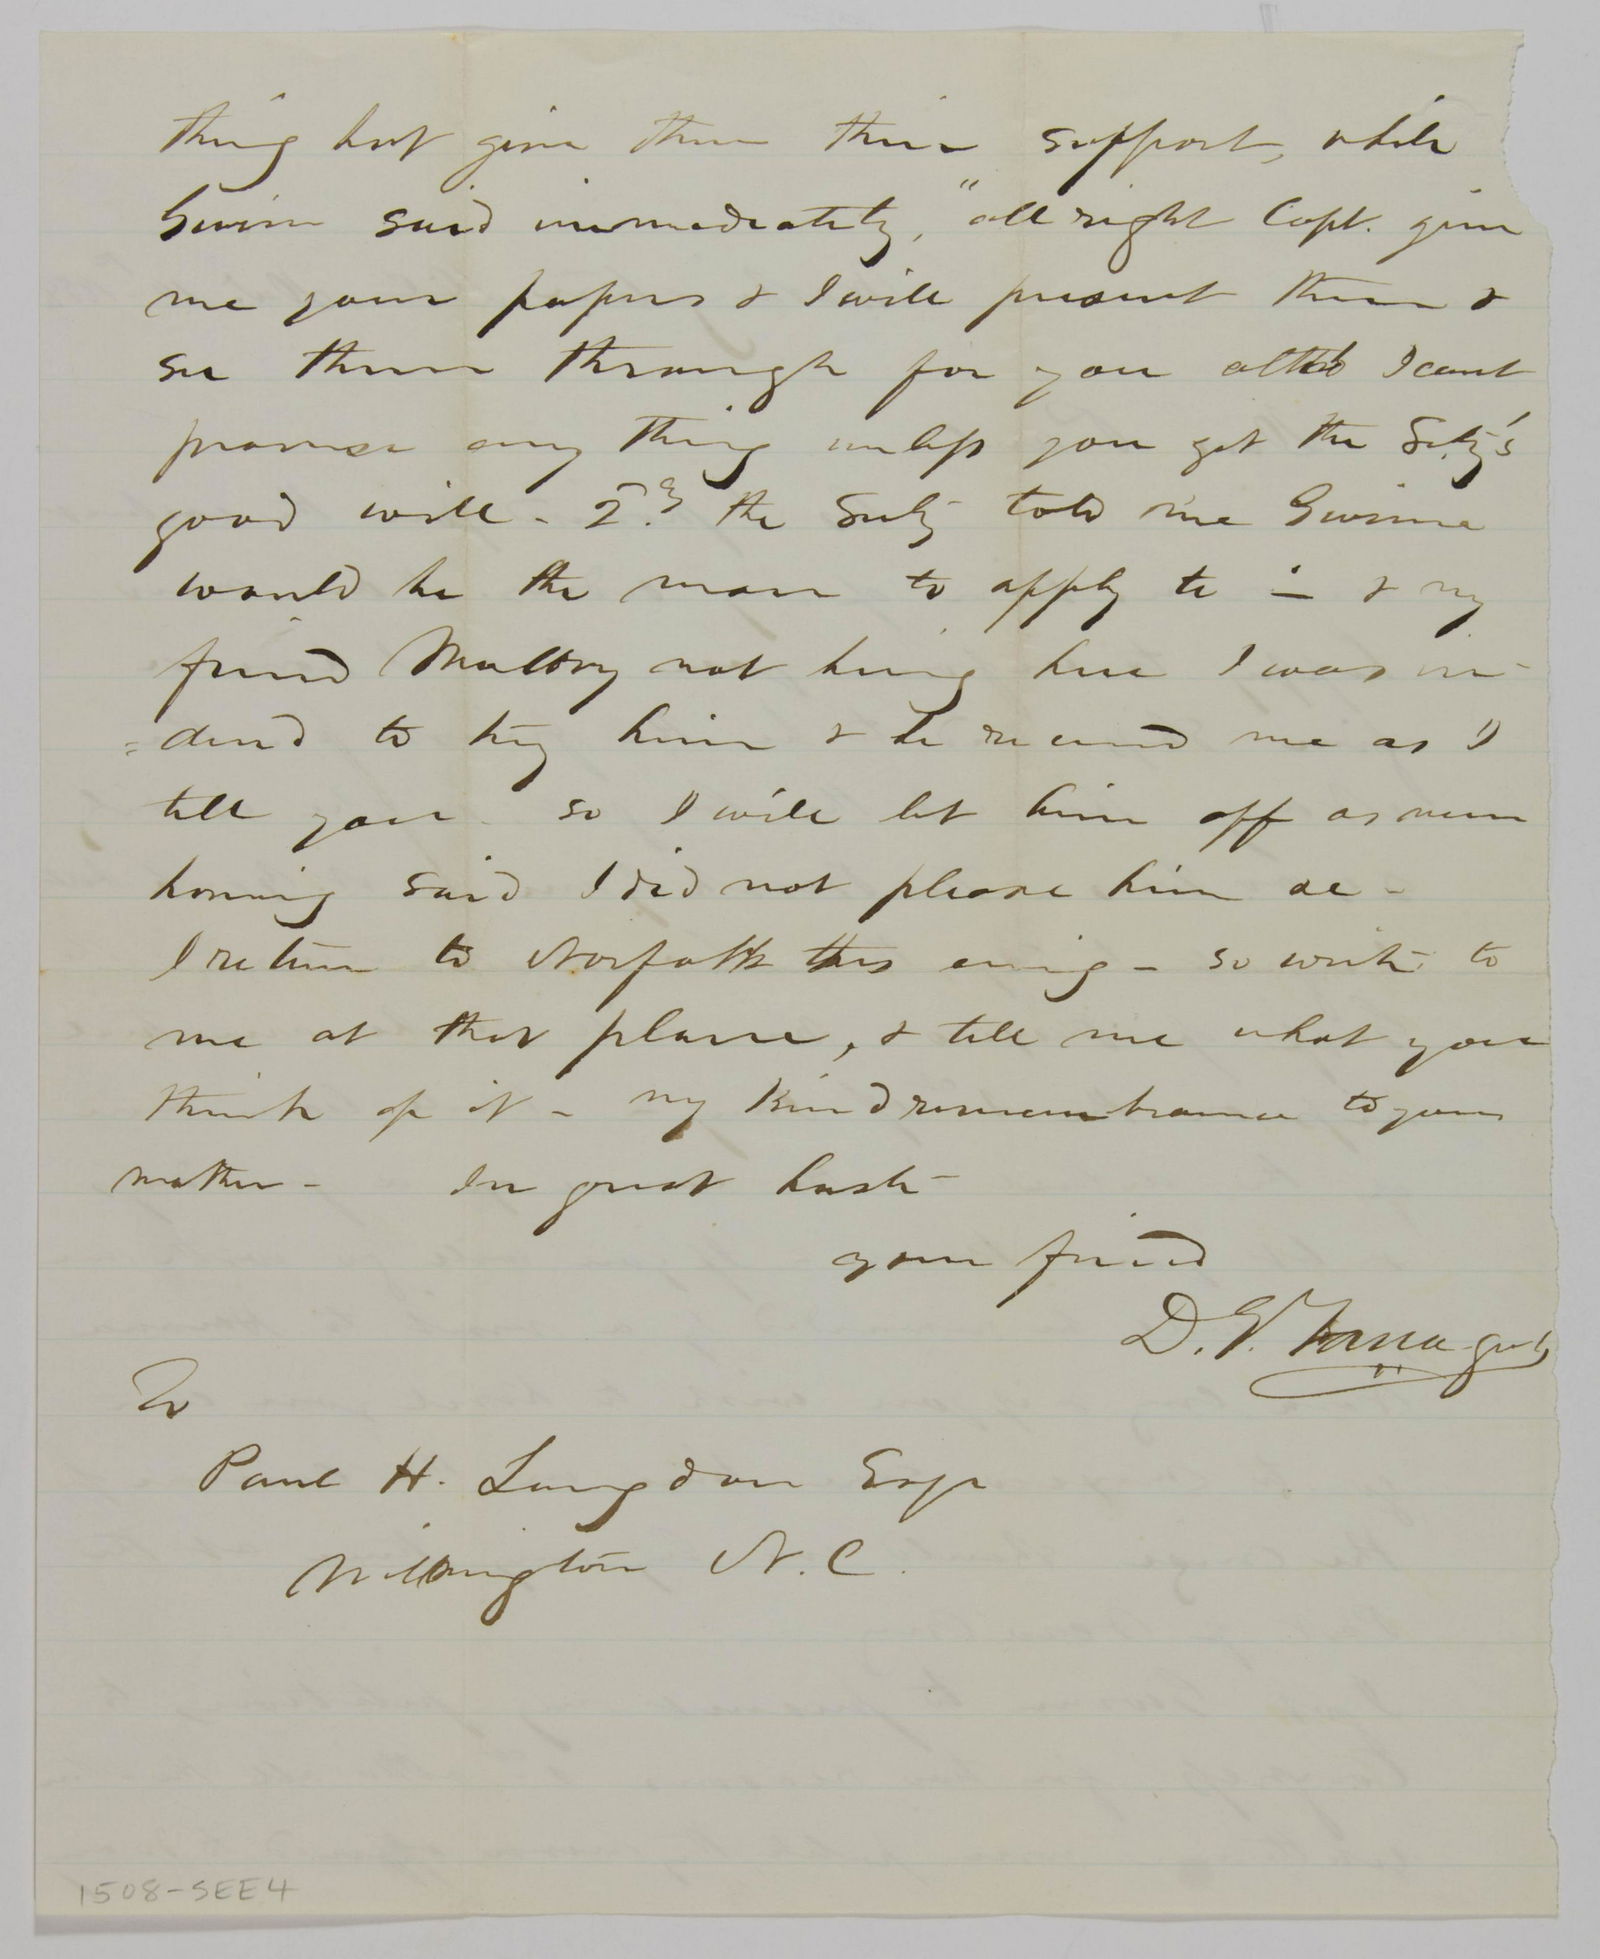 thing but give them their support, while
Gwinn said immediately, "all right Capt. give
me your papers & I will present them &
see them through for you altho I cant
promise any thing unless you get the Secty's
good will - 2.d the Secty told me Gwinne
would be the man to apply to - & my
friend Mallory not being here I was in-
=duced to try him & he received me as I
tell you - so I will let him off as never
having said I did not please him &c -
I return to Norfolk this evening - so write to
me at that place, & tell me what you
think of it - my Kind remembrance to your
mother - In great haste
your friend
D. G. Farragut
To
Paul H. Langdon Esqr
Wilmington N. C.
1508-SEE4